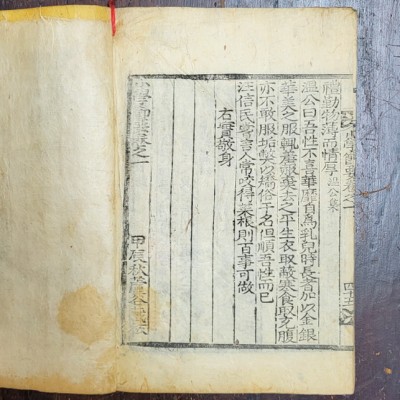 小學節要卷之一
禮勤物薄而情厚
溫公曰吾性不喜華靡自爲乳兒時長者加以金銀
華美之服輒羞赧棄去之平生衣取蔽寒食取充腹
亦不敢服垢弊以矯俗干名但順吾性而已
汪信民嘗言人常咬得菜根則百事可做
右實敬身
小學節要卷之一
甲辰秋